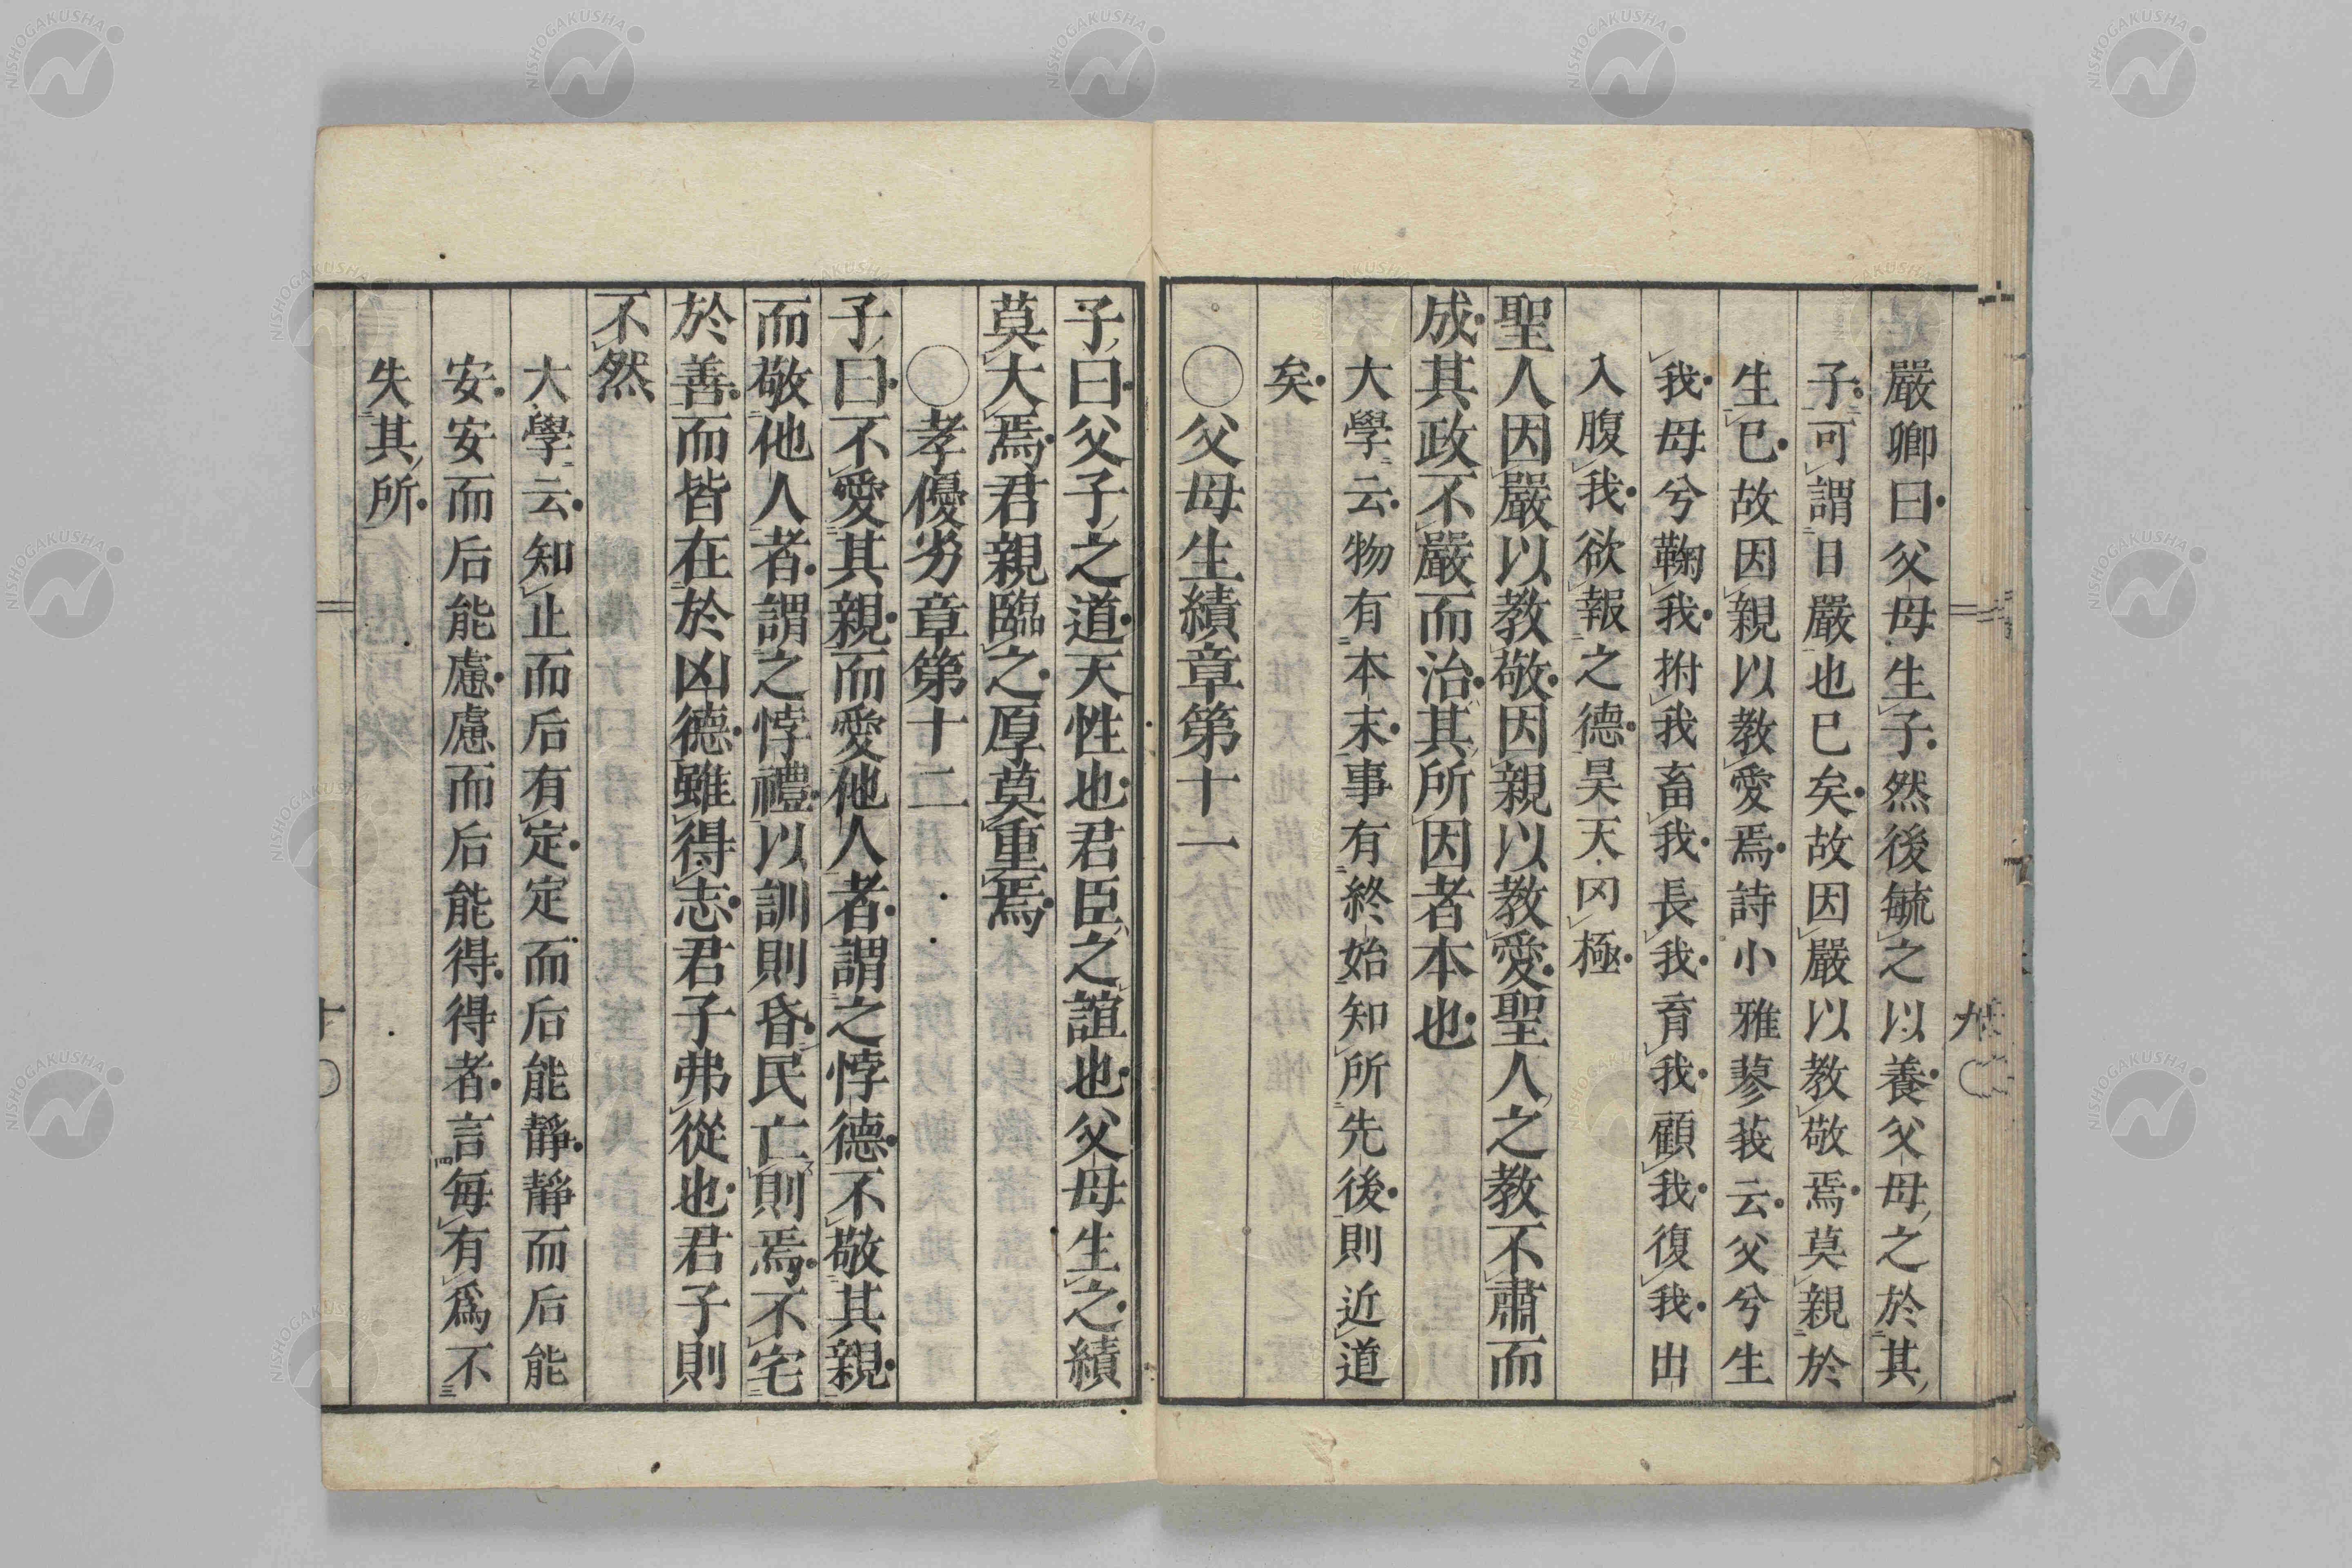 嚴卿曰父母生子然後毓之以養父母之於其
子可謂日嚴也已矣故因嚴以教敬焉莫親於
生已故因親以教愛焉詩小雅蓼莪云父兮生
我母兮鞠我拊我畜我長我育我顧我復我出
入腹我欲報之德昊天罔極
聖人因嚴以教敬因親以教愛聖人之教不肅而
成其政不嚴而治其所因者本也
大學云物有本末事有終始知所先後則近道
矣
○父母生績章第十一
子曰父子之道天性也君臣之誼也父母生之績
莫大焉君親臨之厚莫重焉
○孝優劣章第十二
子曰不愛其親而愛他人者謂之悖德不敬其親
而敬他人者謂之悖禮以訓則昏民亡則焉不宅
於善而皆在於凶德雖得志君子弗從也君子則
不然
大學云知止而后有定定而后能靜靜而后能
安安而后能慮慮而后能得得者言毎有爲不
失其所
九
十
NISHOGAKUSHA